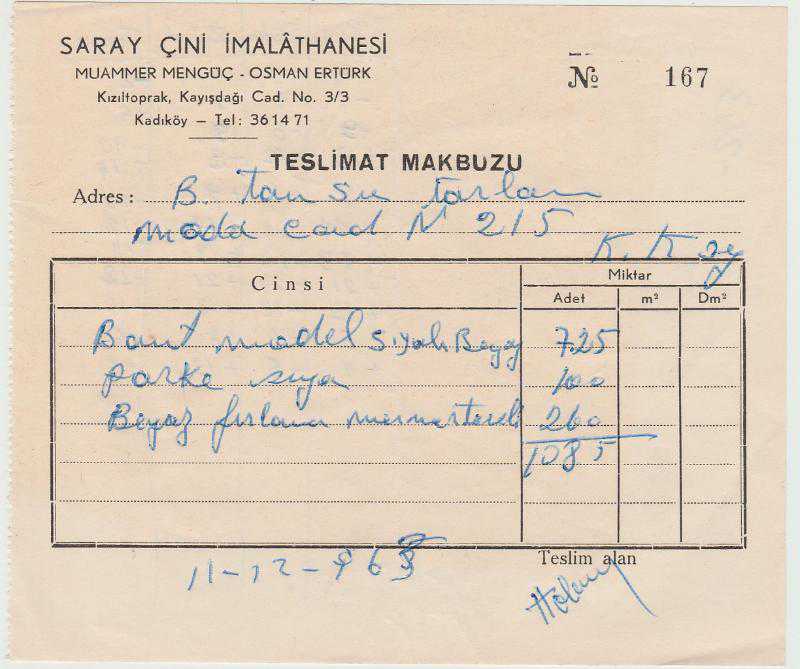 SARAY ÇİNİ İMALÂTHANESİ
MUAMMER MENGÜÇ - OSMAN ERTÜRK
Kızıltoprak, Kayışdağı Cad. No. 3/3
Kadıköy – Tel: 36 14 71
№ 167
TESLİMAT MAKBUZU
Adres : B. tan su tarlan
moda cad N 215
K. Köy
Cinsi Miktar
Adet m² Dm²
Bant model siyah Beyaz 725
parke 100
Beyaz 260
1085
11-12-963
Teslim alan